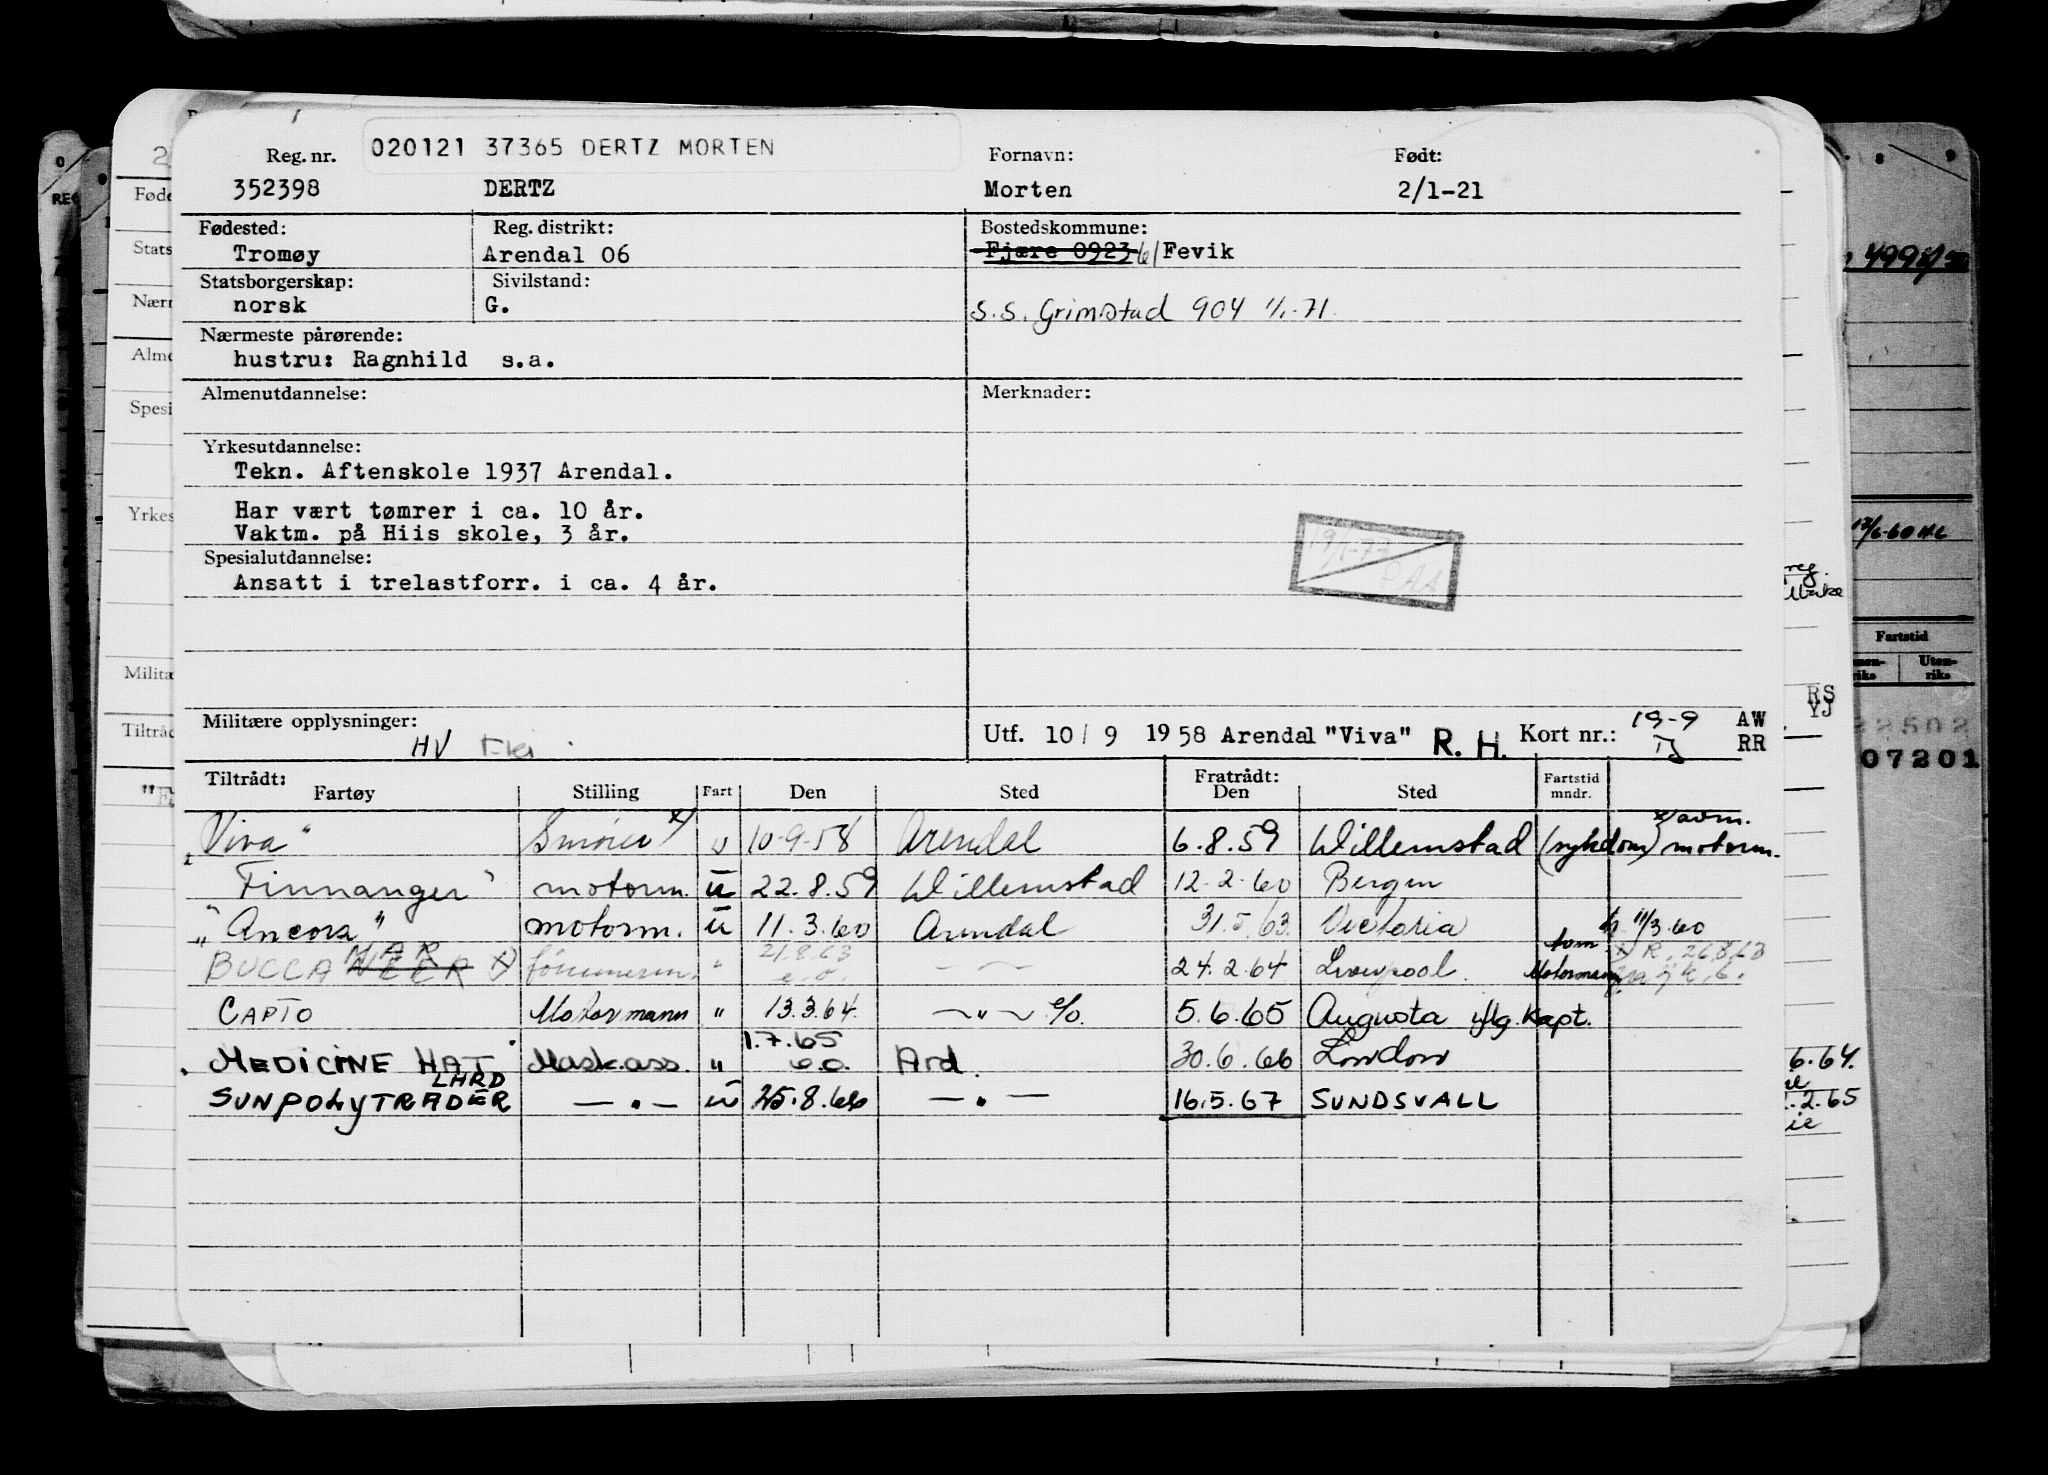 020121 37365 DERTZ MORTEN
Reg. nr. Fornavn: Født:
352398 DERTZ Morten 2/1-21
Fødested: Reg. distrikt: Bostedskommune:
Tromøy Arendal 06 Fjære 0923 Fevik
Statsborgerskap: Sivilstand:
norsk G. S.S. Grimstad 904 1/1-71
Nærmeste pårørende:
hustru: Ragnhild s.a.
Almenutdannelse: Merknader:
Yrkesutdannelse:
Tekn. Aftenskole 1937 Arendal.
Har vært tømrer i ca. 10 år.
Vaktm. på Hiis skole, 3 år.
Spesialutdannelse:
Ansatt i trelastforr. i ca. 4 år.
19/1-77
Militære opplysninger: HV
Utf. 10/9 1958 Arendal "Viva" R. H. Kort nr.: 19-9 AW RR
Tiltrådt: Fratrådt: Fartstid
Fartøy Stilling Fart Den Sted Den Sted mndr.
"Viva" Smører x) u 10-9-58 Arendal 6.8.59 Willemstad (sykdom) x) avm. motorm.
Finnanger" motorm. u 22.8.59 Willemstad 12-2-60 Bergen
"Ancora" motorm. u 11.3.60 Arendal 31.5.63. Victoria 11/3.60
BUCCANEER MAR x) " 21.8.63 e.o. 24.2.64 Liverpool. som Motormann x) R. 26.8.63
CAPTO Motormann " 13.3.64. — " — e/o. 5.6.65 Augusta iflg. Kapt.
MEDICINE HAT Mask.ass. " 1.7.65 e.o. Ard. 30.6.66 London
SUNPOLYTRADER LHRD — " — u 25.8.66 — " — 16.5.67 SUNDSVALL
Fartstid
RS
YJ
07201
6.64.
2.65